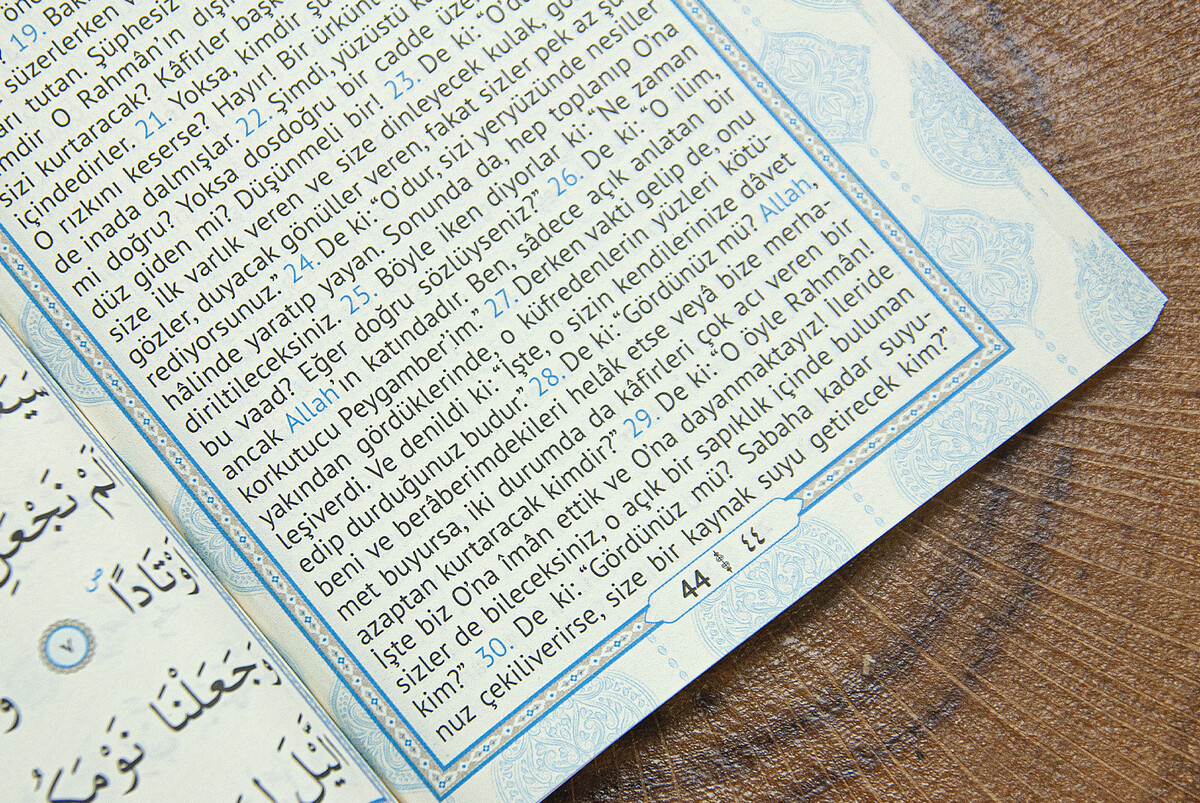 19.
süzerlerken
tutan. Şüphesiz
O Rahmân'ın
sizi kurtaracak? Kâfirler
içindedirler. 21. Yoksa, kimdir şu
O rızkını keserse? Hayır! Bir
de inada dalmışlar. 22. Şimdi, yüzüstü
mi doğru? Yoksa dosdoğru bir cadde
düz giden mi? Düşünmeli bir! 23. De ki:
size ilk varlık veren ve size dinleyecek kulak,
gözler, duyacak gönüller veren, fakat sizler pek az
rediyorsunuz.” 24. De ki: “O'dur, sizi yeryüzünde nesiller
hâlinde yaratıp yayan. Sonunda da, hep toplanıp O'na
diriltileceksiniz. 25. Böyle iken diyorlar ki: “Ne zaman
bu vaad? Eğer doğru sözlüyseniz?” 26. De ki: “O ilim,
ancak Allah'ın katındadır. Ben, sâdece açık anlatan bir
korkutucu Peygamber'im.” 27. Derken vakti gelip de, onu
yakından gördüklerinde, o küfredenlerin yüzleri kötü-
leşiverdi. Ve denildi ki: “İşte, o sizin kendilerinize dâvet
edip durduğunuz budur.” 28. De ki: “Gördünüz mü? Allah,
beni ve berâberimdekileri helâk etse veyâ bize merha-
met buyursa, iki durumda da kâfirleri çok acı veren bir
azaptan kurtaracak kimdir?” 29. De ki: “O öyle Rahmân!
İşte biz O'na îmân ettik ve O'na dayanmaktayız! İleride
sizler de bileceksiniz, o açık bir sapıklık içinde bulunan
kim?” 30. De ki: “Gördünüz mü? Sabaha kadar suyu-
nuz çekiliverirse, size bir kaynak suyu getirecek kim?”
44 ٤٤
اَلَمْ نَجْعَلِ
وْتَادًا ٧
وَجَعَلْنَا
الَّيْلَ